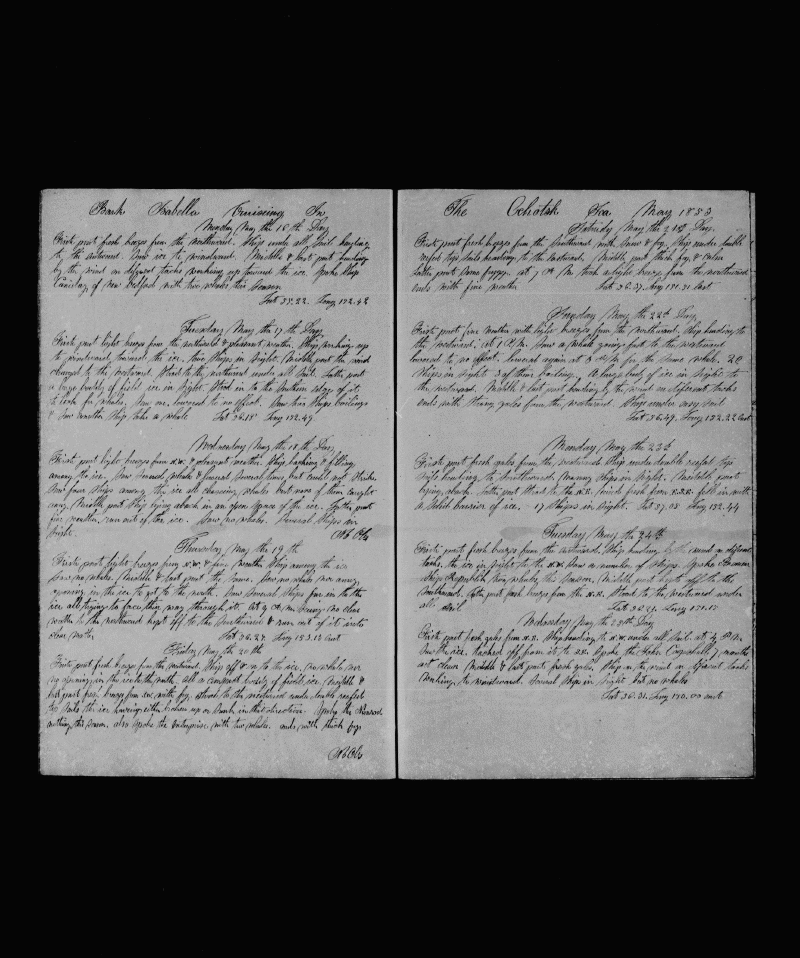 Bark Isabella Cruising In
Monday May the 16th Day
First part fresh breeze from the northward. Ship under all sail heading
to the eastward. Saw ice to windward. Middle & last part heading
by the wind on different tacks working up toward the ice. Spoke Ship
of New Bedford with two whales this season
Lat 55.22. Long 152.42
Tuesday May the 17th Day
First part light breeze from the northward & pleasant weather. Ship working up
to windward toward the ice. two Ships in sight. Middle part the wind
changed to the eastward. Stood to the northward under all sail. Latter part
a large body of field ice in sight. Stood in to the Southern edge of it
to look for whales. Saw one, lowered to no effect. Saw five Ships boiling
& saw another Ship take a whale Lat 56.18 Long 152.49
Wednesday May the 18th Day
First part light breeze from & pleasant weather. Ship backing & filling
among the ice. Saw several whales & lowered several times but could not strike.
Saw four Ships among the ice all chasing whales but none of them caught
any. Middle part Ship lying aback in an open space of the ice. Latter part
fine weather, run out of the ice. Saw no whales. Several Ships in
sight.
Thursday May the 19th
First part light breeze from N.W. & fine weather Ship among the ice
Saw no whales. Middle & last part the same. Saw no whales nor any
opening in the ice to get to the north. Saw several Ships far in to the
ice all trying to force their way through it. At 9 A.M. seeing no clear
water to the northward kept off to the Southward & run out of it into
clear water Lat 56.27. Long 153.12 East
Friday May the 20th
First part fresh breeze from the northward. Ship off & on to the ice, no whales nor
no opening in the ice to the north. All a compact body of field ice, middle &
last part fresh breeze from with fog, stood to the westward under double reefs
to the ice having either broken up or sunk in that direction. Spoke the
nothing this season, also spoke the Enterprise with two whales. ends with thick fog
The Ochotsk Sea May 1853
Saturday May the 21st Day.
First part fresh breeze from the Southward with Snow & fog. Ship under double
reefed top sails heading to the Eastward. Middle part thick fog & calm
Latter part some foggy. at 7 A.M. took a light breeze from the northward
ends with fine weather Lat 56.37. Long 151.31 East
Sunday May the 22nd Day
First part fine weather with light breeze from the northward. Ship heading to
the eastward. At 1 P.M. Saw a whale going fast to the eastward
lowered to no effect. lowered again at 3 P.M. for the same whale. 20
Ships in sight & of them boiling. A large body of ice in sight to
the northward. Middle & last part heading by the wind on different tacks
ends with strong gales from the eastward. Ship under easy sail
Lat 56.49. Long 152.22 East
Monday May the 23d
First part fresh gales from the eastward. Ship under double reefed top
sails heading to Southward. many Ships in sight. Middle part
lying aback. Latter part stood to the N.E. wind fresh from fell in with
a solid barrier of ice. 17 Ships in sight. Lat 57.08 Long 152.44
Tuesday May the 24th
First part fresh breeze from the eastward. Ship heading by the wind on different
tacks. the ice in sight to the N.W. Saw a number of Ships. Spoke Bremen
Ship Republik two whales this season. Middle part kept off to the
Southward. Latter part fresh breeze from the N.E. Stood to the westward under
all sail. Lat 56.29. Long 151.15
Wednesday May the 25th Day
First part fresh gales from N.E. Ship heading to N.W. under all sail. At 4 P.M.
Saw the ice. tacked off from it to Spoke the John Coggeshall, 7 months
out clean Middle & last part fresh gales. Ship by the wind on different tacks
working to windward. Several Ships in sight but no whales
Lat 56.31. Long 150.00 East